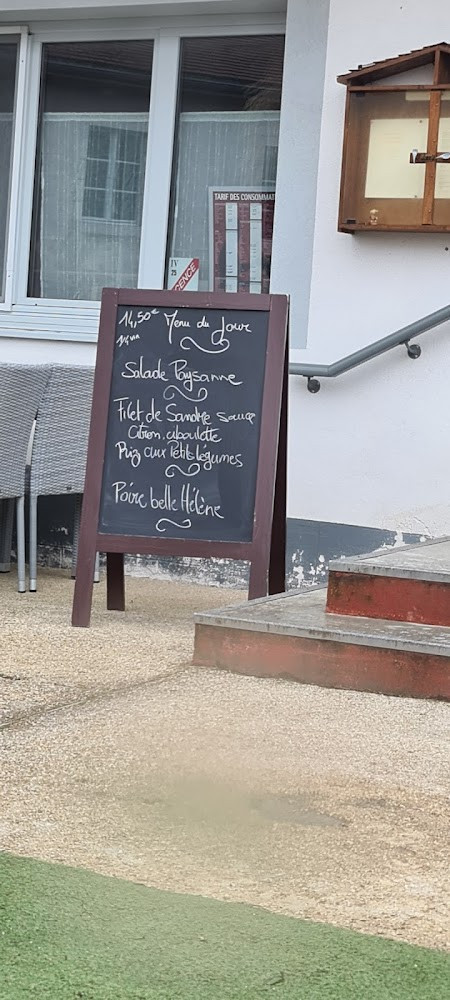 TARIF DES CONSOMMAT
14,50€ Menu du Jour
Salade Paysanne
Filet de Sandre sauce
Citron, ciboulette
Riz aux Petits légumes
Poire belle Hélène